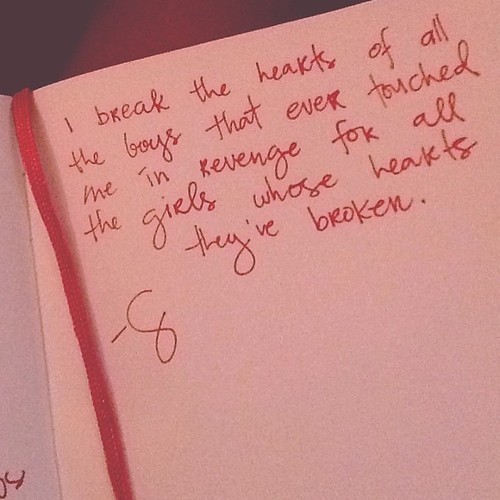 I break the hearts of all
the boys that ever touched
me in revenge for all
the girls whose hearts
they've broken.
-S